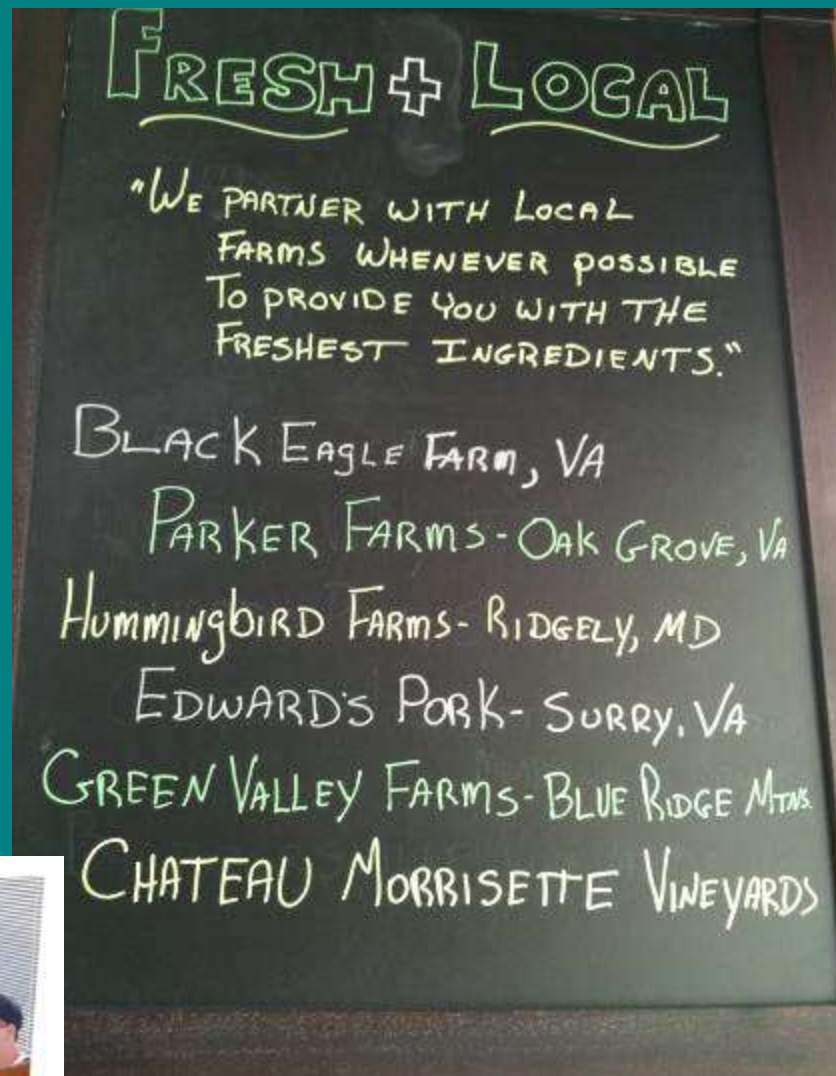 FRESH + LOCAL
"WE PARTNER WITH LOCAL
FARMS WHENEVER POSSIBLE
TO PROVIDE YOU WITH THE
FRESHEST INGREDIENTS."
BLACK EAGLE FARM, VA
PARKER FARMS - OAK GROVE, VA
HUMMINGBIRD FARMS - RIDGELY, MD
EDWARD'S PORK - SURRY, VA
GREEN VALLEY FARMS - BLUE RIDGE MTNS.
CHATEAU MORRISETTE VINEYARDS